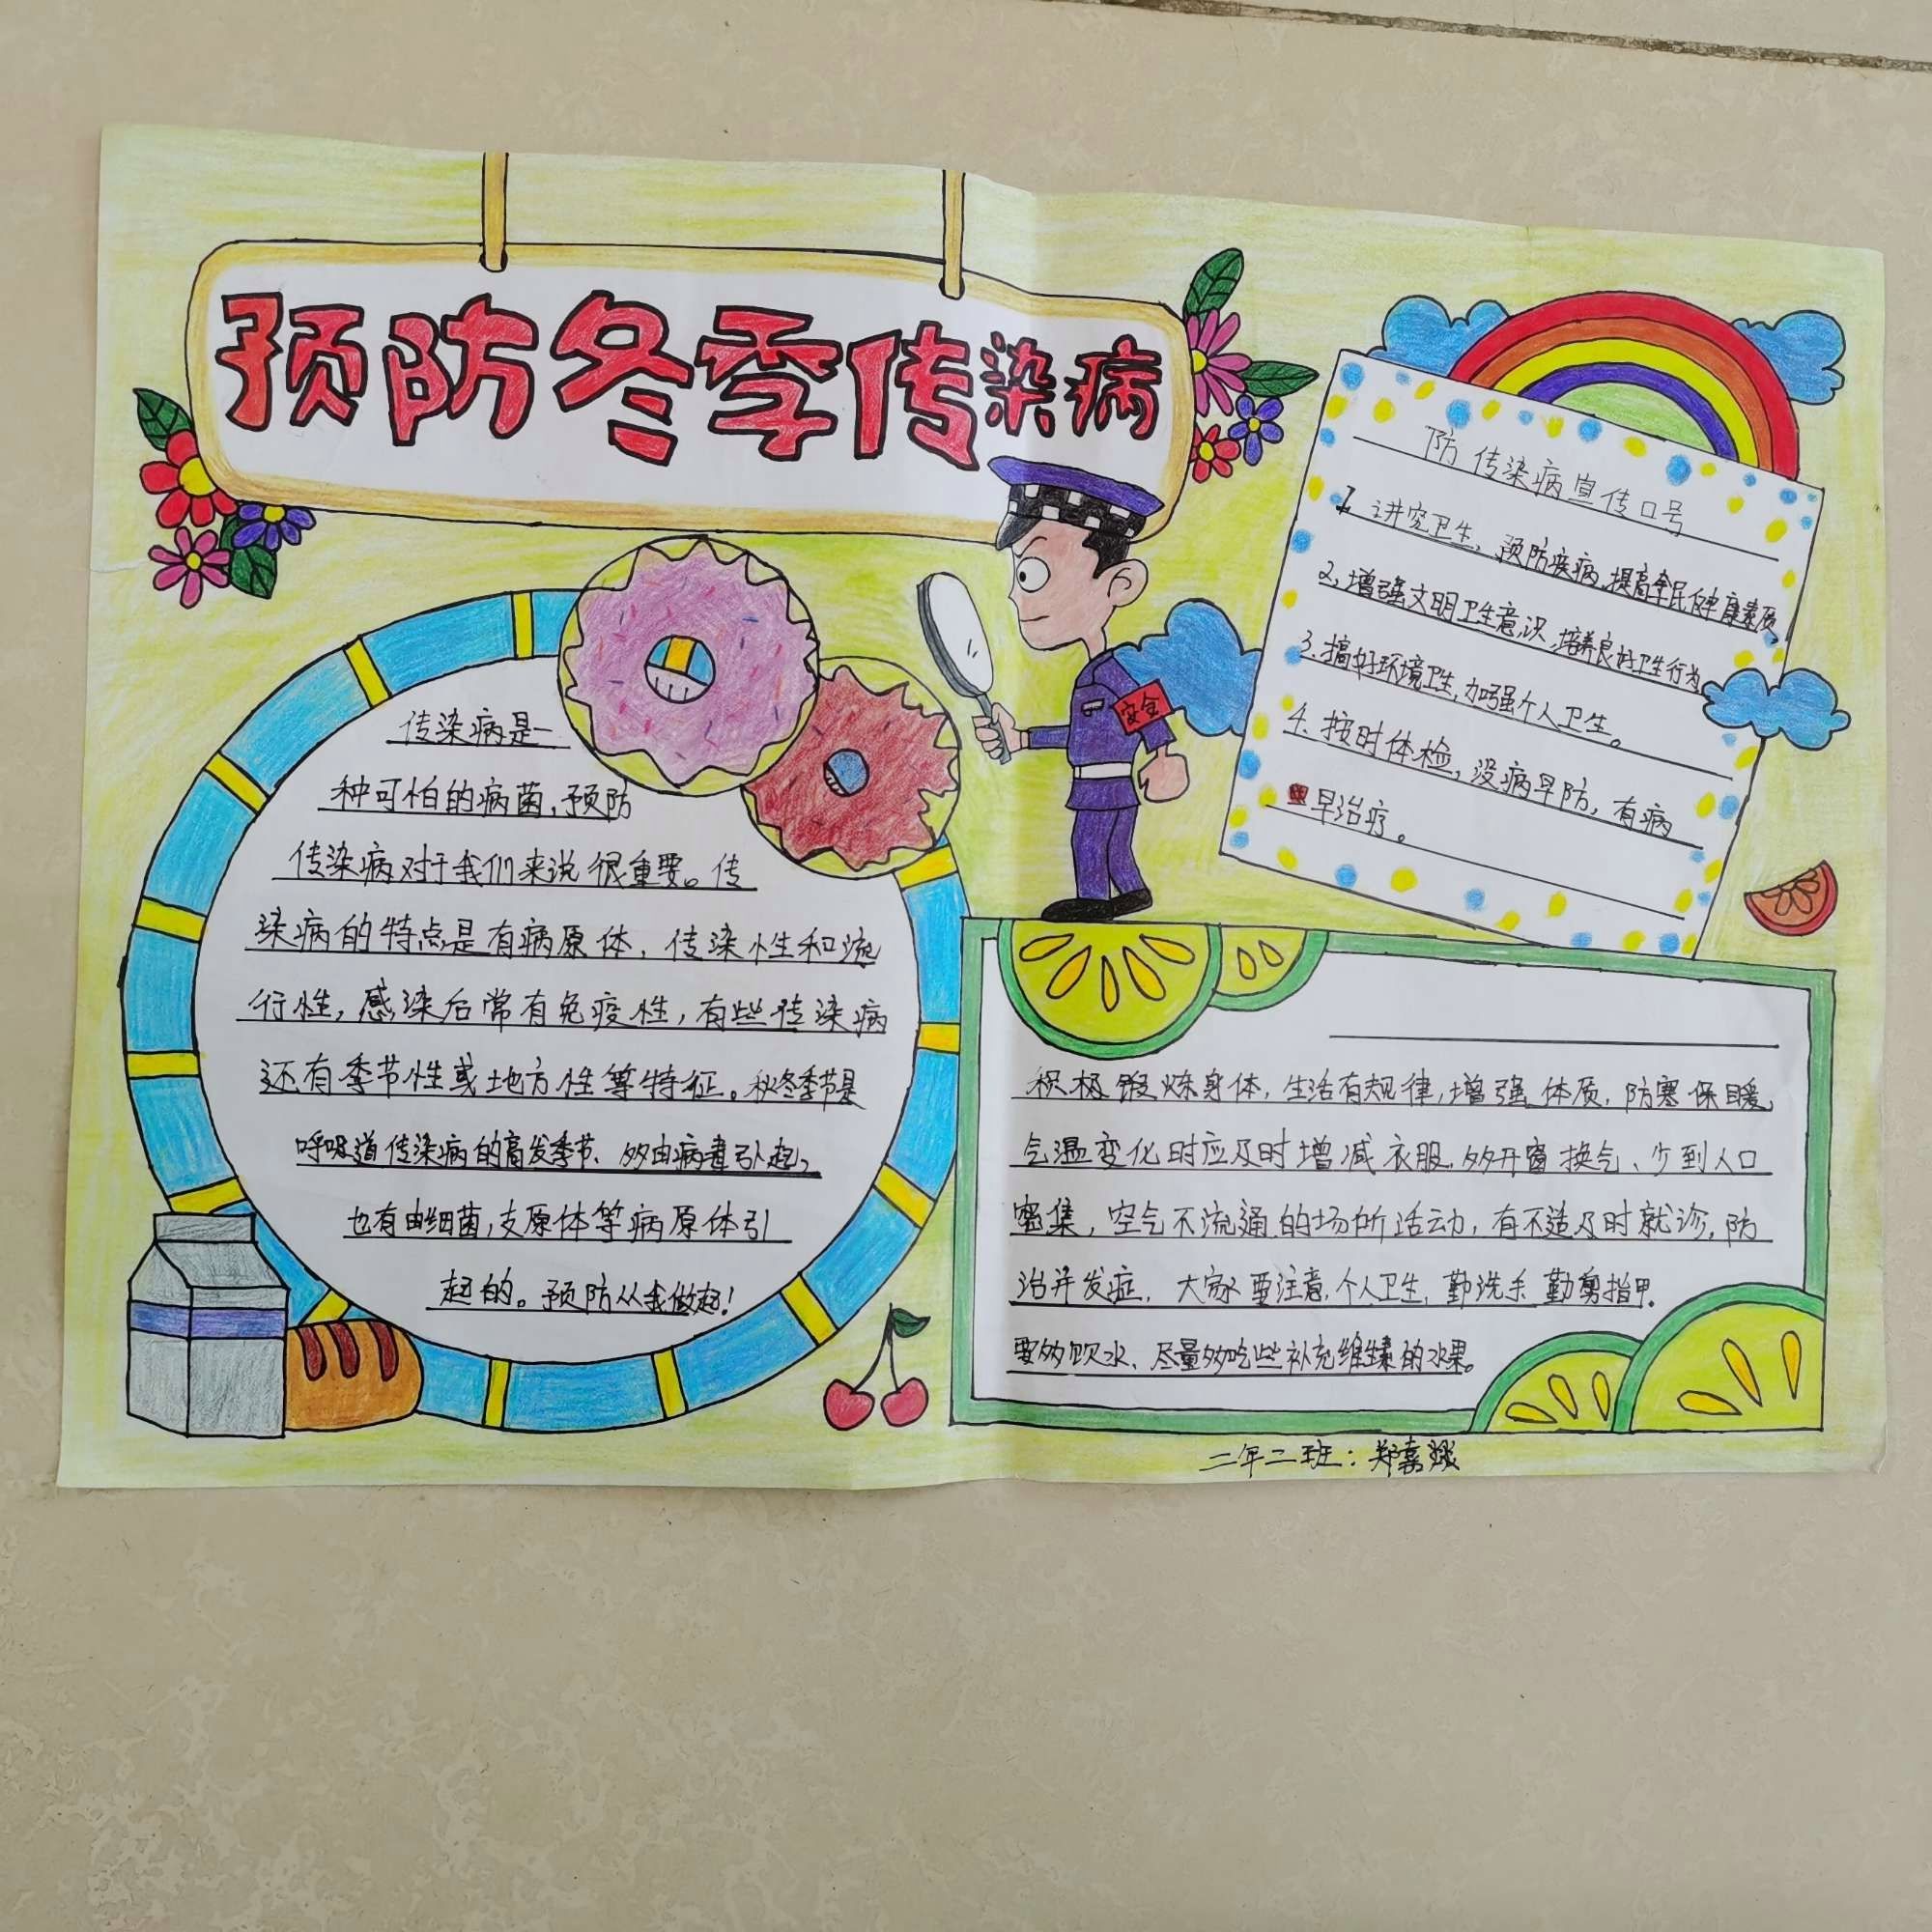 预防冬季传染病
传染病是一
种可怕的病菌,预防
传染病对于我们来说很重要。传
染病的特点是有病原体,传染性和流
行性,感染后常有免疫性,有些传染病
还有季节性或地方性等特征。秋冬季节是
呼吸道传染病的高发季节、多由病毒引起,
也有由细菌,支原体等病原体引
起的。预防从我做起!
安全
防传染病宣传口号
1、讲究卫生,预防疾病,提高全民健康素质
2、增强文明卫生意识,培养良好卫生行为
3.搞好环境卫生,加强个人卫生。
4.按时体检,没病早防,有病
早治疗。
积极锻炼身体,生活有规律,增强体质,防寒保暖,
气温变化时应及时增减衣服,多开窗换气、少到人口
密集,空气不流通的场所活动,有不适及时就诊,防
治并发症,大家要注意,个人卫生,勤洗手 勤剪指甲.
要多饮水、尽量多吃些补充维生素的水果。
二年二班:郑嘉